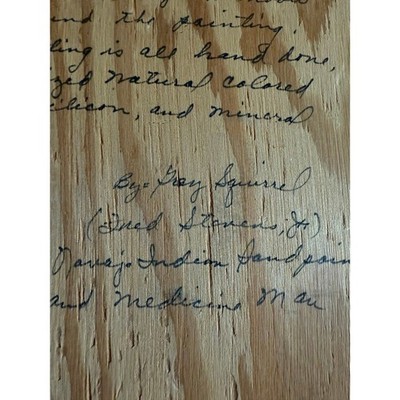 und the painting.
ting is all hand done,
ized natural colored
ilicon, and mineral
By= Grey Squirrel
(Fred Stevens, Jr)
Navajo Indian Sandpain
and Medicine Man